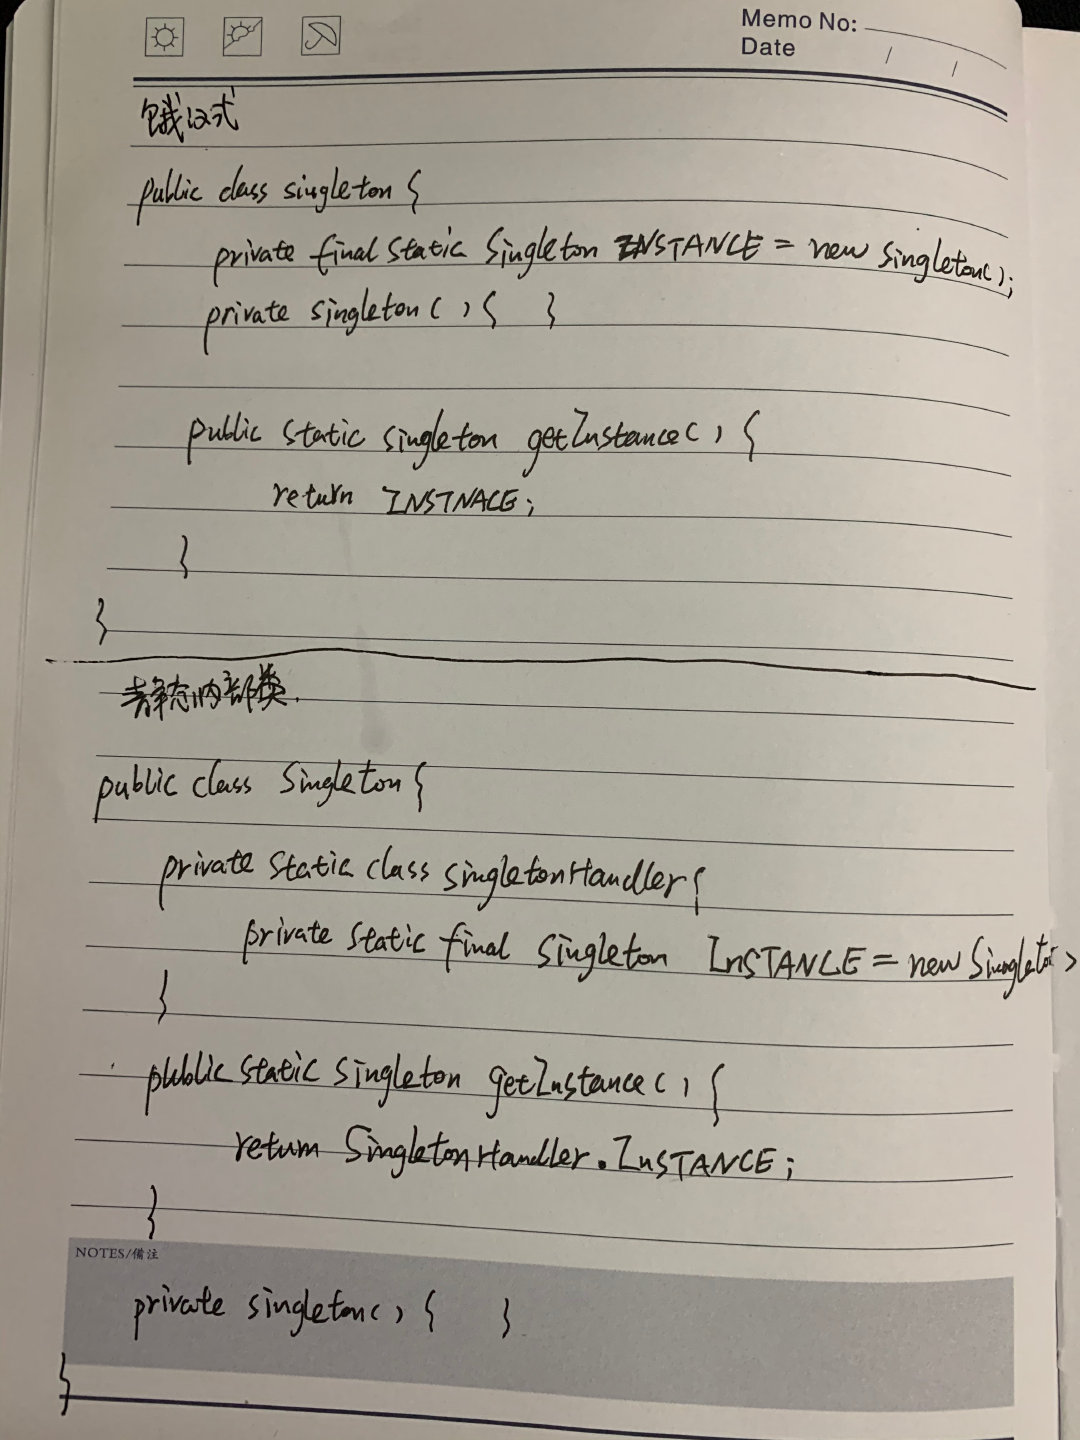 Memo No:
Date / /
饿汉式
public class singleton {
private final static Singleton INSTANCE = new singleton();
private singleton() { }
public static singleton getInstance() {
return INSTNACE;
}
}
静态内部类.
public class Singleton {
private static class singletonHandler {
private static final singleton InSTANCE = new Singleton
}
public static singleton getInstance() {
return SingletonHandler.InSTANCE;
}
NOTES/備注
private singleton() { }
}